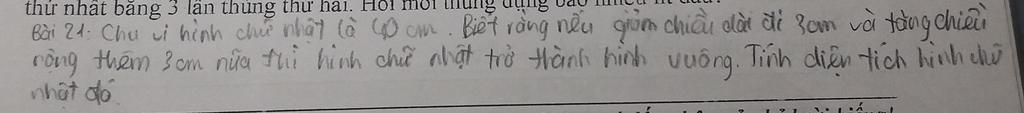 thứ nhất bằng 3 lần thùng thứ hai. Hỏi mỗi thùng đựng bao nhiêu lít dầu?
Bài 21: Chu vi hình chữ nhật là cm. Biết rằng nếu giảm chiều dài đi 3cm và tăng chiều
rộng thêm 3cm nữa thì hình chữ nhật trở thành hình vuông. Tính diện tích hình chữ
nhật đó.